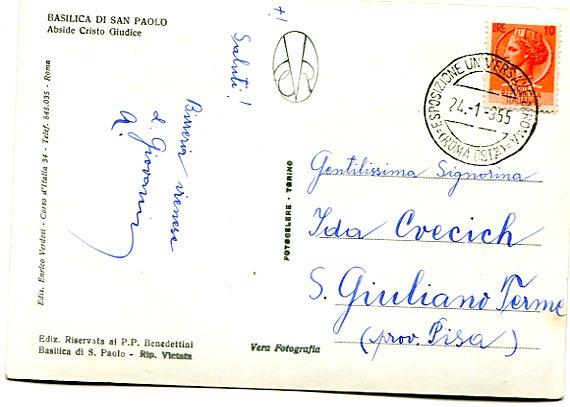 BASILICA DI SAN PAOLO
Abside Cristo Giudice
Ediz. Enrico Verdesi - Corso d'Italia 34 - Telef. 848.035 - Roma
Saluti!
Birreria viennese
d. Giovanni
Ediz. Riservata ai P.P. Benedettini
Basilica di S. Paolo - Rip. Vietata
Vera Fotografia
FOTOCELERE - TORINO
LIRE 10
ESPOSIZIONE UNIVERSALE ROMA
24.-1-955
(ROMA OSTA)
Gentilissima Signorina
Ida Cvecich
S. Giuliano Terme
(prov. Pisa)